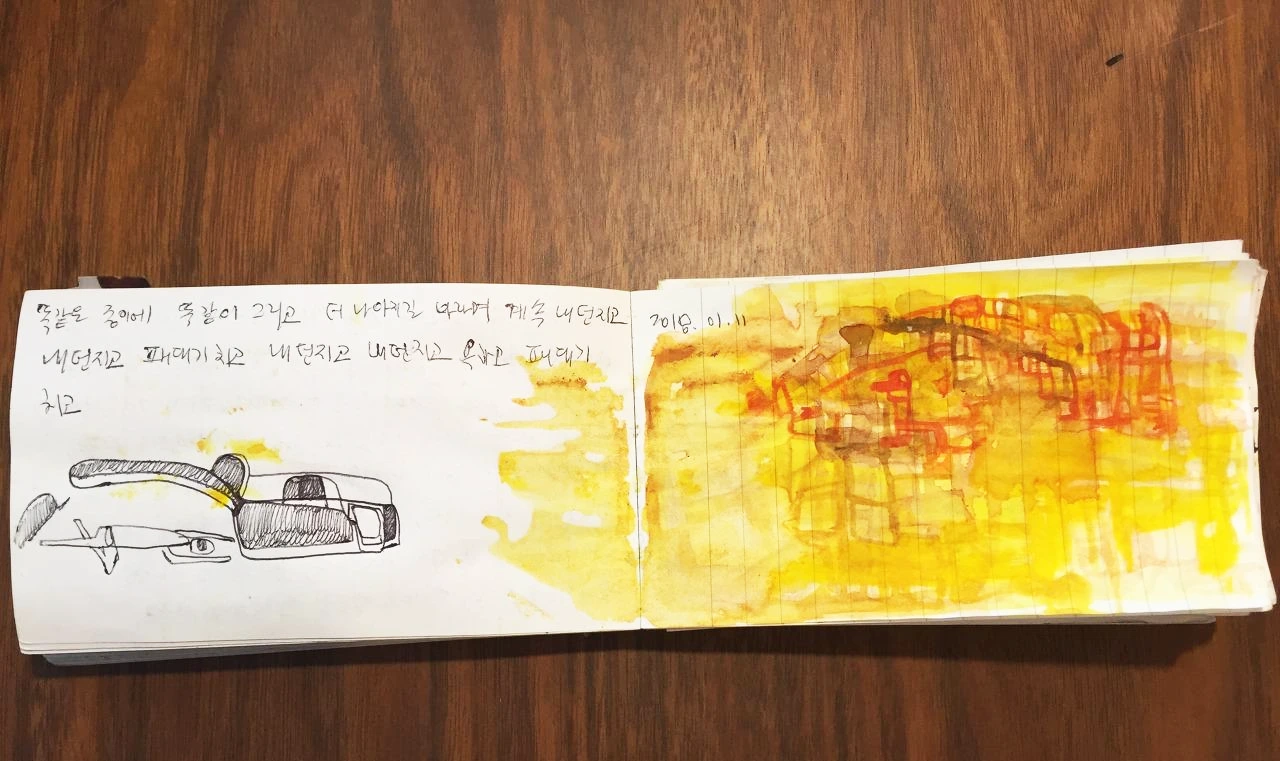 똑같은 종이에 똑같이 그리고 더 나아지길 바라며 계속 내던지고
내던지고 패대기치고 내던지고 내던지고 욕하고 패대기
치고
2018. 01. 11